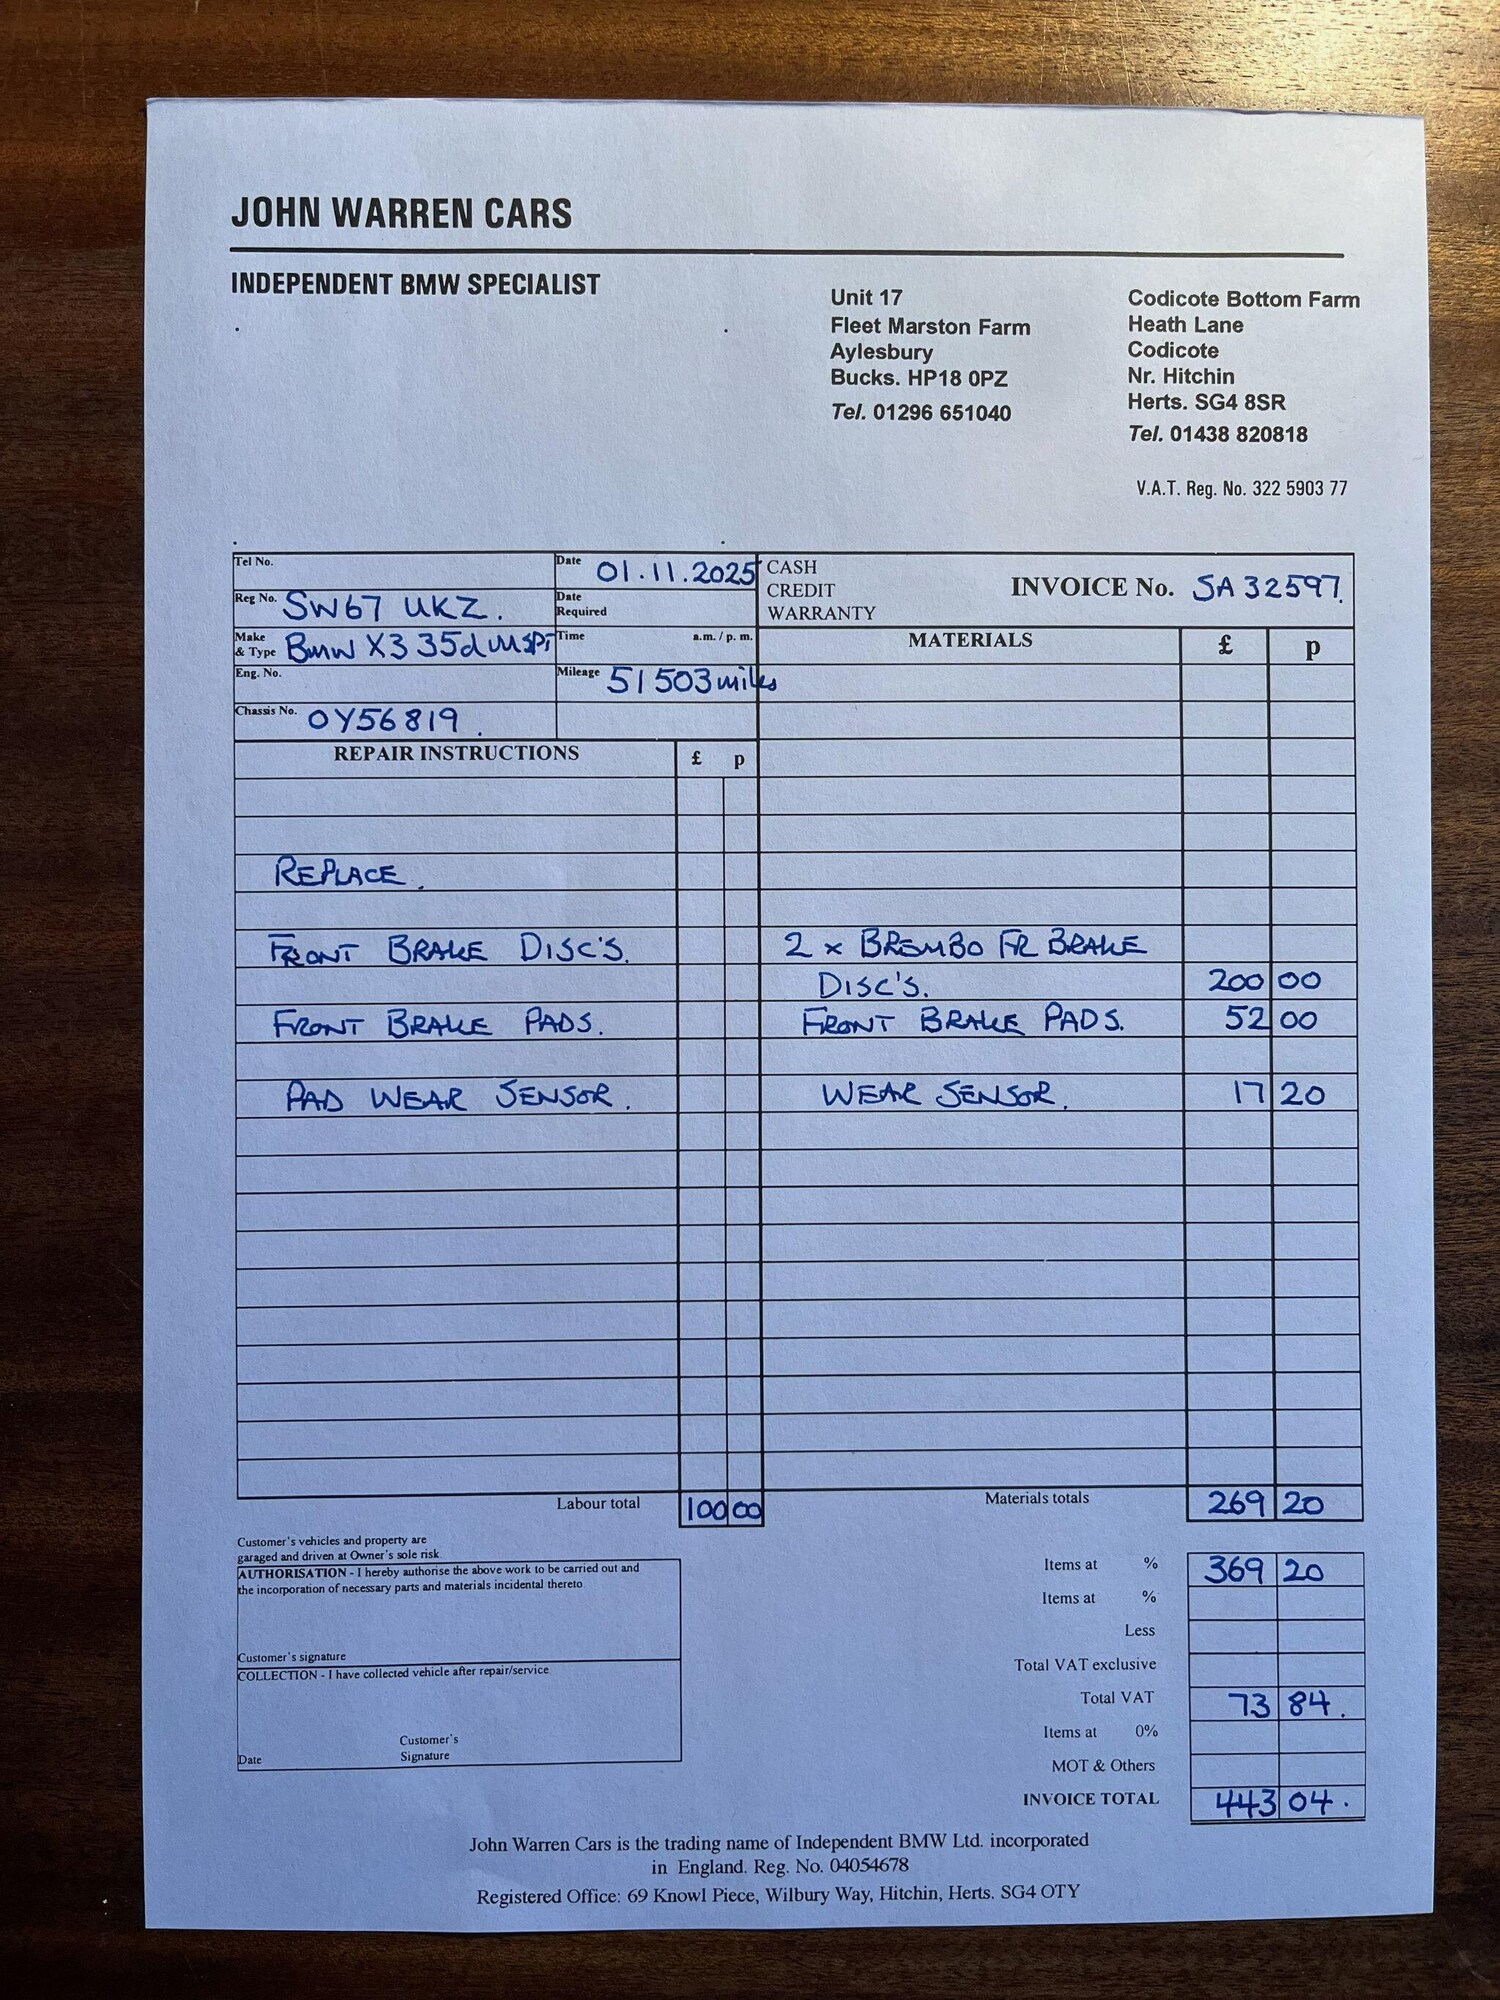 JOHN WARREN CARS
INDEPENDENT BMW SPECIALIST
Unit 17
Fleet Marston Farm
Aylesbury
Bucks. HP18 0PZ
Tel. 01296 651040
Codicote Bottom Farm
Heath Lane
Codicote
Nr. Hitchin
Herts. SG4 8SR
Tel. 01438 820818
V.A.T. Reg. No. 322 5903 77
Tel No.
Date 01.11.2025
CASH
CREDIT
WARRANTY
INVOICE No. SA 32597.
Reg No. SW67 UKZ.
Date
Required
Make
& Type BMW X3 35d MSPT
Time a.m. / p. m.
Eng. No.
Mileage 51503 miles
Chassis No. 0Y56819.
MATERIALS £ p
REPAIR INSTRUCTIONS £ p
REPLACE.
FRONT BRAKE DISC'S. 2 x BREMBO FR BRAKE
DISC'S. 200 00
FRONT BRAKE PADS. FRONT BRAKE PADS. 52 00
PAD WEAR SENSOR. WEAR SENSOR. 17 20
Labour total 100 00 Materials totals 269 20
Customer's vehicles and property are
garaged and driven at Owner's sole risk
AUTHORISATION - I hereby authorise the above work to be carried out and
the incorporation of necessary parts and materials incidental thereto.
Customer's signature
COLLECTION - I have collected vehicle after repair/service
Customer's
Signature
Date
Items at % 369 20
Items at %
Less
Total VAT exclusive
Total VAT 73 84.
Items at 0%
MOT & Others
INVOICE TOTAL 443 04.
John Warren Cars is the trading name of Independent BMW Ltd. incorporated
in England. Reg. No. 04054678
Registered Office: 69 Knowl Piece, Wilbury Way, Hitchin, Herts. SG4 OTY